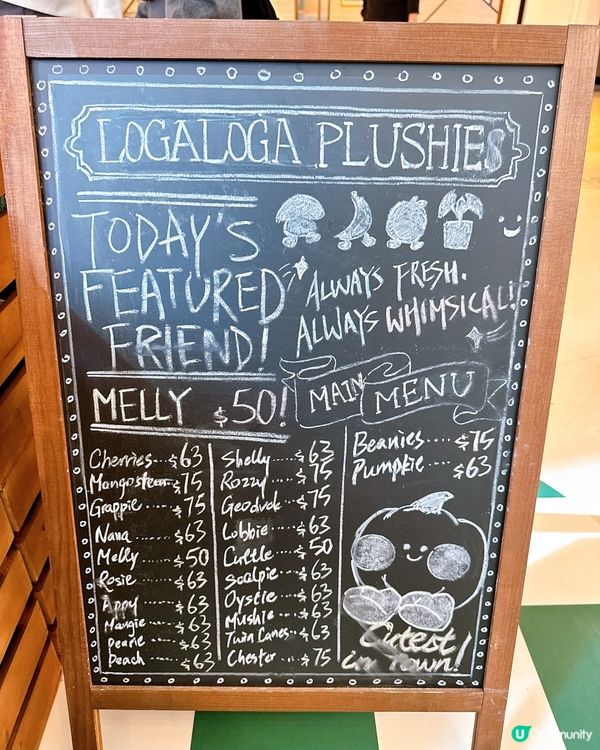 LOGALOGA PLUSHIES
TODAY'S
FEATURED
FRIEND!
MELLY $50!
ALWAYS FRESH.
ALWAYS WHIMSICAL!
MAIN MENU
Cherries...$63
Mangosteen...$75
Grappie......$75
Nana.........$63
Melly........$50
Rosie........$63
Appy.........$63
Mangie.......$63
Pearie.......$63
Peach........$63
Shelly....$63
Rozzy.....$75
Geoduck...$75
Lobbie....$63
Cuttle....$50
Scalpie...$63
Oystie....$63
Mushie....$63
Twin Canes..$63
Chester...$75
Beanies....$75
Pumpkie....$63
Cutest
in Town!
U Community